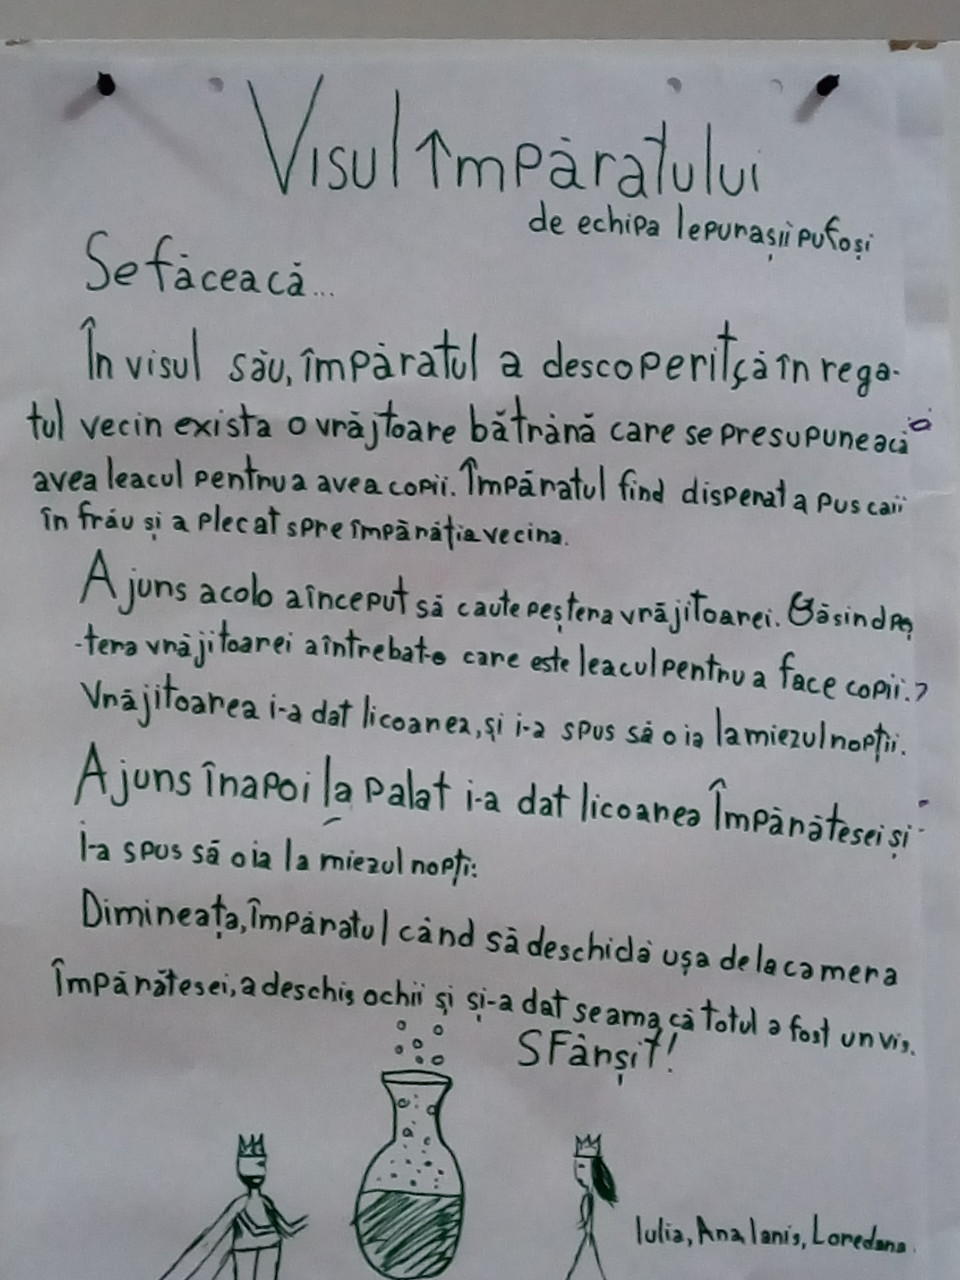 Visul Împăratului
de echipa lepurașii pufoși
Se făcea că...
În visul său, împăratul a descoperit çă în rega-
tul vecin exista o vrăjtoare bătrână care se presupunea că
avea leacul pentru a avea copii. Împăratul find disperat a pus caii
în frâu și a plecat spre împărăția vecina.
Ajuns acolo a început să caute peștera vrăjitoarei. Găsind peș
-tera vrăjitoarei a întrebat-o care este leacul pentru a face copii.?
Vrăjitoarea i-a dat licoarea, și i-a spus să o ia la miezul nopții.
Ajuns înapoi la palat i-a dat licoarea Împărătesei și
i-a spus să o ia la miezul nopții:
Dimineața, împăratul când să deschidă ușa de la camera
Împărătesei, a deschis ochii și și-a dat seama că totul a fost un vis.
SFânșit!
Iulia, Ana, Ianis, Loredana.